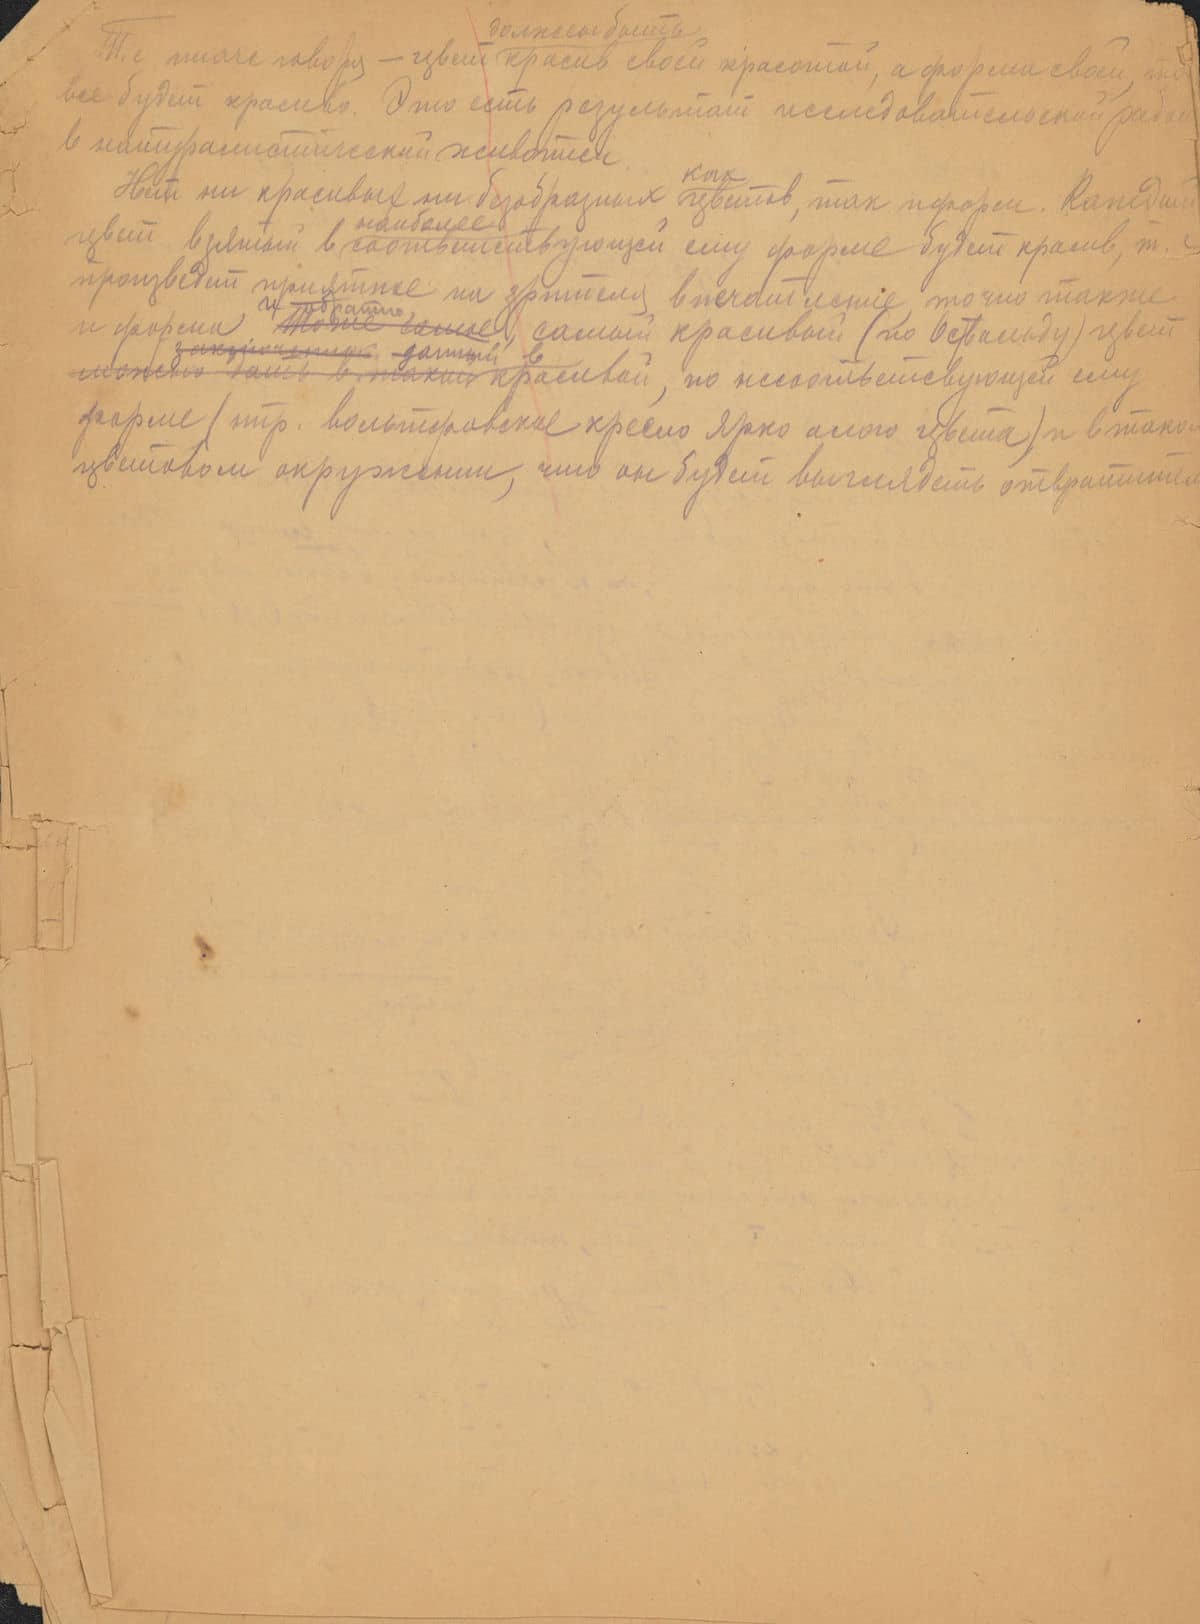 должен быть
Т.е иначе говоря – цвет красив своей красотой, а форма своей, то
все будет красиво. Это есть результат исследовательской работ
в натуралистической живописи
как
Нет ни красивых ни безобразных цветов, так и форм. Каждый
наиболее
цвет взятый в соответствующей ему форме будет красив, т. е
произведет приятное на зрителя впечатление точно также
и обратно
и форма, тоже самое, самый красивый (по Оствальду) цвет
данный в
можно дать в таких красивой, но несоответсвующей ему
форме (нпр. вольтеровское кресло ярко алого цвета) и в таком
цветовом окружении, что он будет выглядеть отвратител